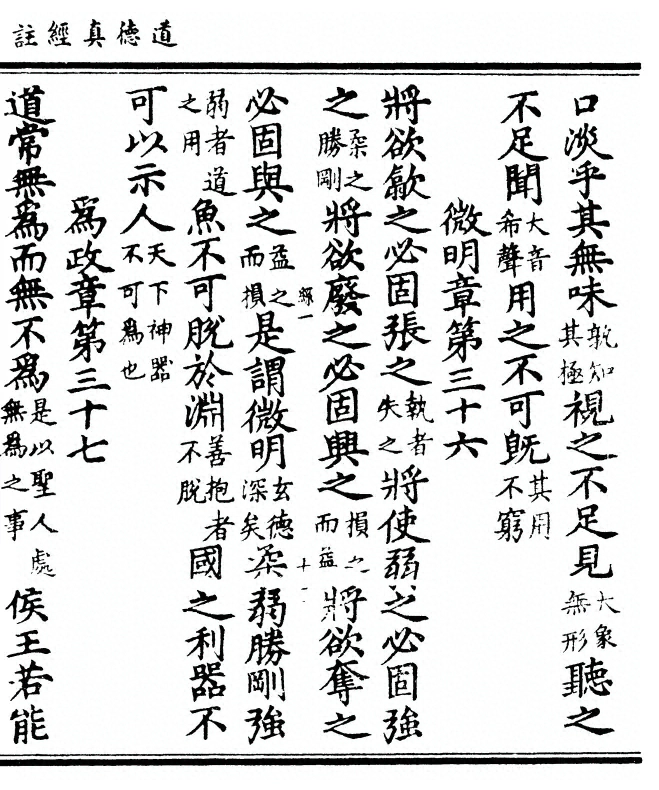 道德真經註
口淡乎其無味孰知其極視之不足見大象無形聽之
不足聞大音希聲用之不可旣其用不窮
微明章第三十六
將欲歙之必固張之執者失之將使弱之必固強
之柔之勝剛將欲廢之必固興之損之而益將欲奪之
必固與之益之而損是謂微明玄德深矣柔弱勝剛強
弱者道之用魚不可脫於淵善抱者不脫國之利器不
可以示人天下神器不可爲也
爲政章第三十七
道常無爲而無不爲是以聖人處無爲之事侯王若能